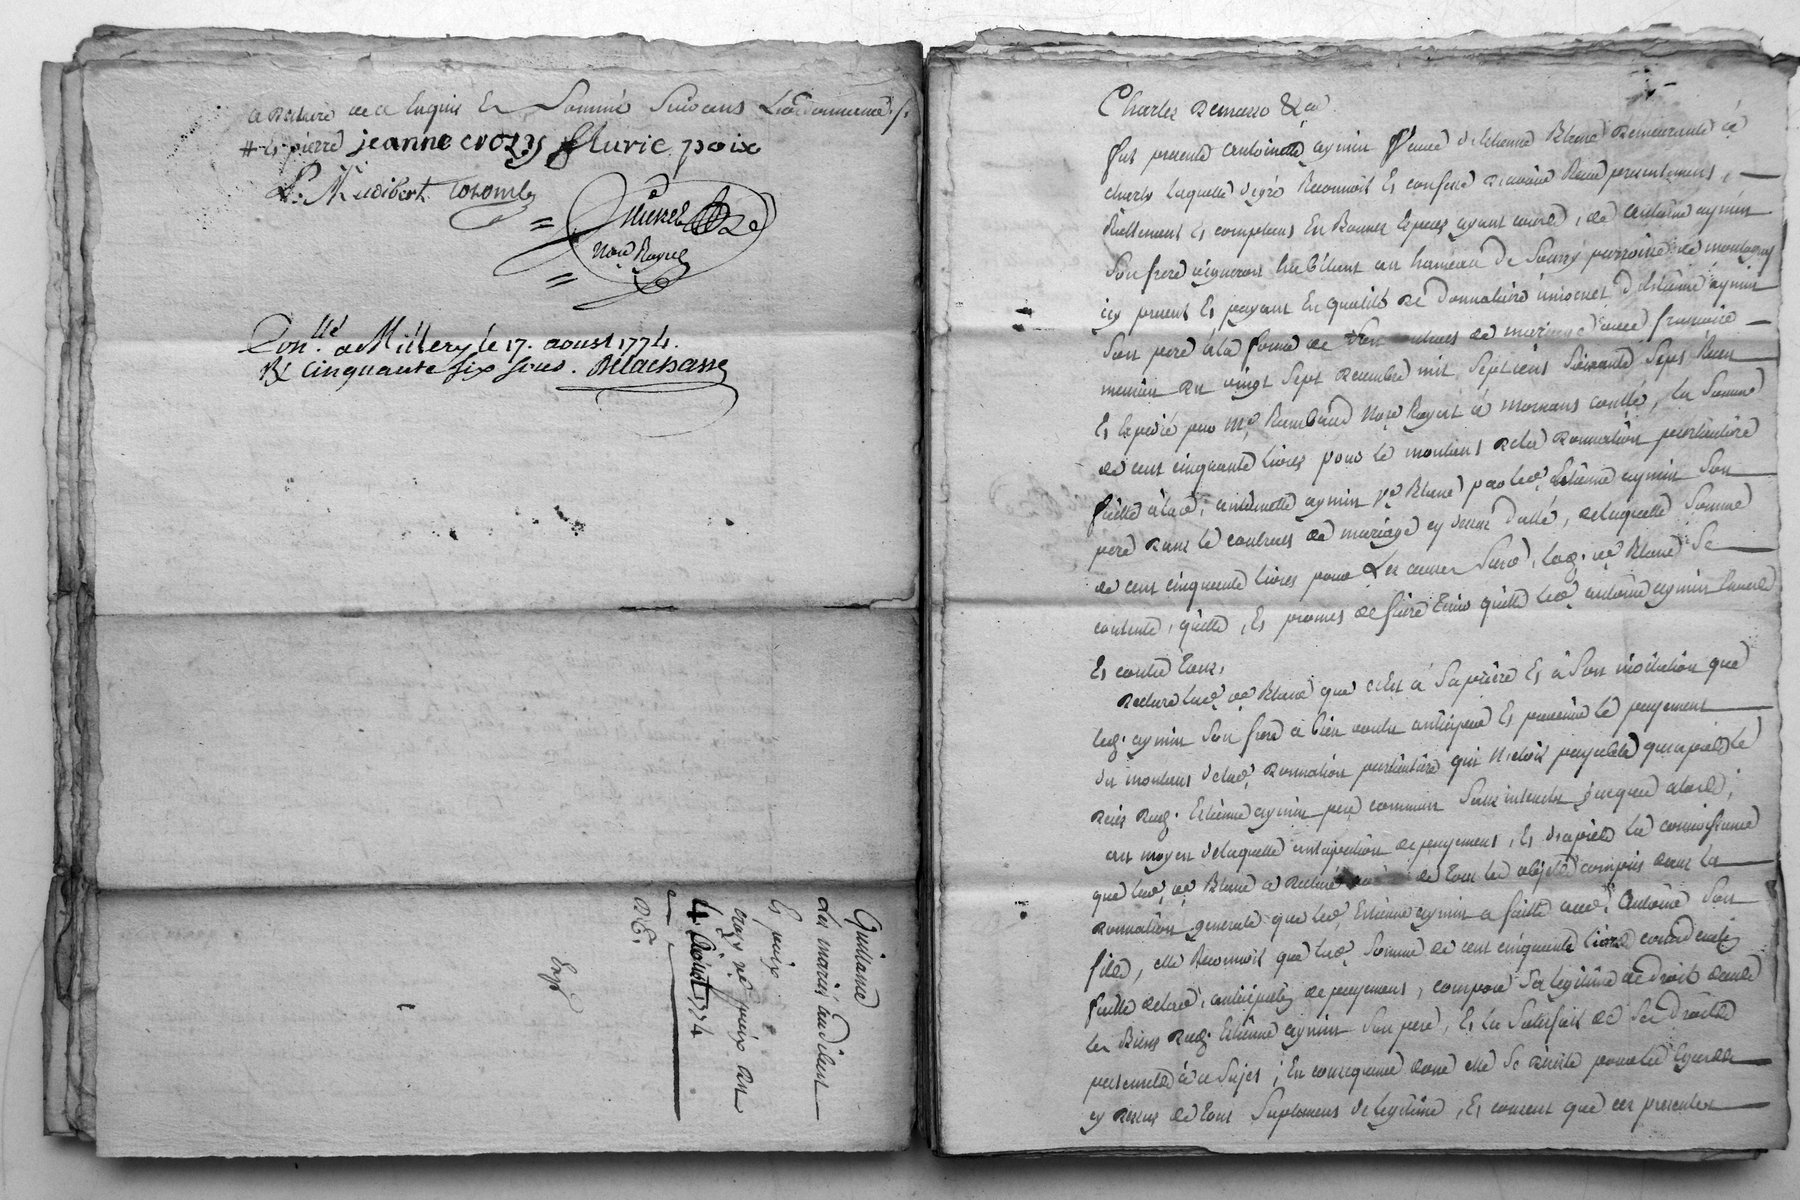 a declaré de ce enquis et sommé suivant l'ordonnance
# et pierre jeanne crozy fluric poix
Audibert Colomb
Nore Royal
Conllé a Millery le 17. aoust 1774.
R cinquante six sous. Delachasse
Quittance
Les mariés audibert
Et poix
4 Aoust 1774
Expé
Charles Demasso &a
fut presente antoinette aymin veuve d'Etienne Blanc demeurante à
laquelle de gré Reconnoit et confesse avoir Receu presentement,
Reellement et comptant En Bonnes Especes ayant cours, de antoine aymin
son frere vigneron habitant au hameau de Sourzy parroisse de montagny
icy present et payant En qualité de donnataire universel d'Etienne aymin
son pere à la forme de son contract de mariage avec françoise
du vingt sept decembre mil sept cens soixante sept Receu
Et Expedié par Me Rambaud Nore Royal à mornant conllé, la somme
de cent cinquante livres pour le montant de la donnation particuliere
faitte à lad. antoinette aymin ve Blanc par led. Etienne aymin son
pere dans le contract de mariage cy dessus datté, de laquelle somme
de cent cinquante livres pour Les causes Susd. lad. ve Blanc se
contente, quitte, et promet de faire tenir quitte led. antoine aymin Envers
Et contre tous.
Declare lad. ve Blanc que c'est à sa priere et à son invitation que
led. aymin son frere a bien voulu anticiper et prevenir le payement
du montant de lad. donnation particuliere qui N'etoit payable qu'après le
deces dud. Etienne aymin pere commun sans interets jusques alors;
au moyen de laquelle anticipation de payement, et d'après la connoissance
que lad. ve Blanc a declaré avoir de tous les objets compris dans la
donnation generale que led. Etienne aymin a faitte aud. Antoine son
fils, elle Reconnoit que lad. somme de cent cinquante livres
faitte de lad. anticipation de payement, compose sa legitime de droit dans
les Biens dud. Etienne aymin son pere, et la satisfait de ses droits
à ce sujet; En consequence elle se desiste
cy dessus de tous suplement de legitime, et consent que ces presentes